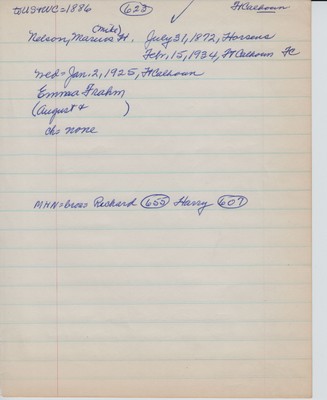 to US+WC=1886 (623) ✓ FtCalhoun
(Mike)
Nelson, Marius H. July 31, 1872, Horsens
Febr. 15, 1934, FtCalhoun FC
wed= Jan. 2, 1925, FtCalhoun
Emma Frahm
(August & )
ch= none
MHN=bros Richard (655) Harry (607)